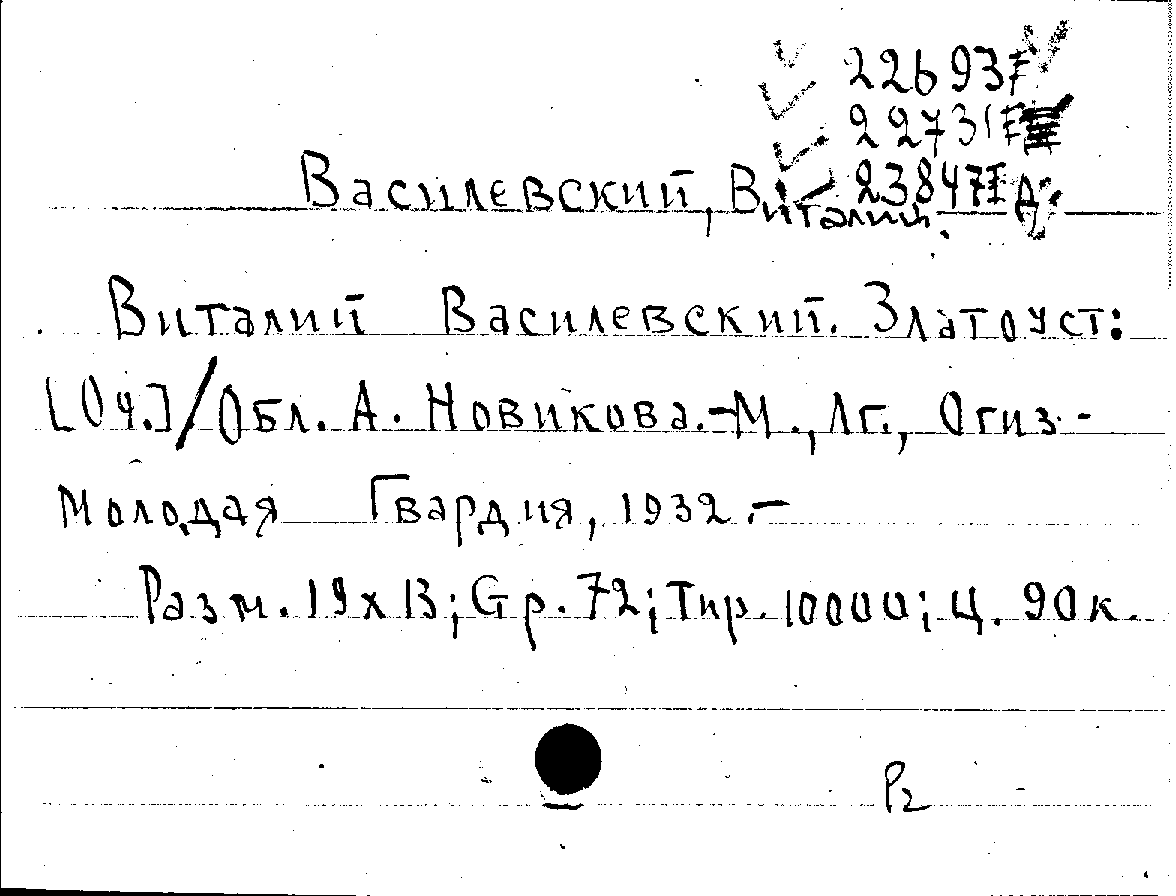 22693F
22731F
23847F д.
Василевский, Виталий.
Виталий Василевский. Златоуст:
[Оч.]/Обл. А. Новикова.-М., Лг., Огиз-
Молодая Гвардия, 1932.-
Разм. 19х13; Gр. 72; Тир. 10000; Ц. 90к.
Р2